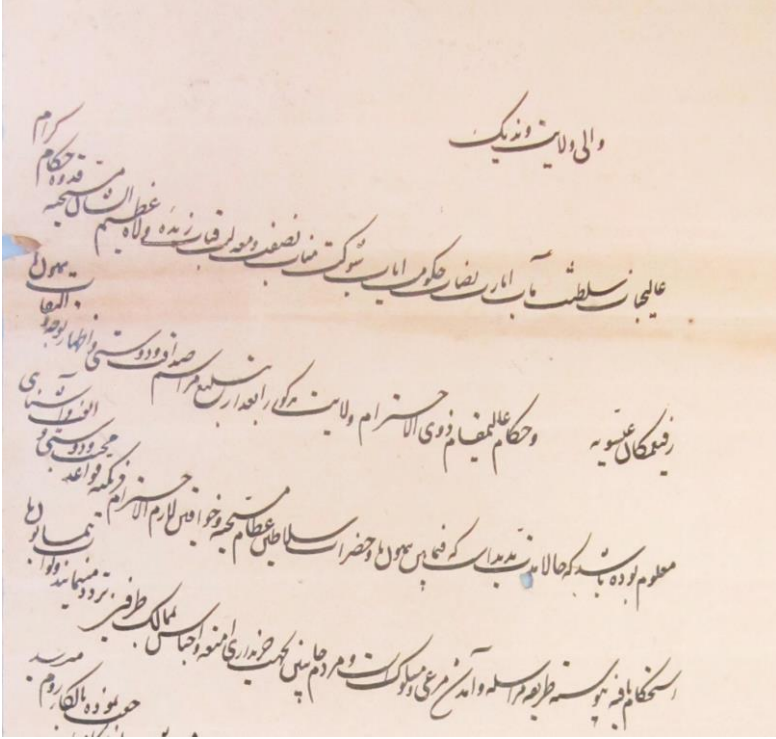 والی ولایت وندیک
عالیجاه سلطنت مآب امارت نصاب حکومت ایاب شوکت مناب نصفت و معدلت قباب زبده ولاة عظیم الشأن مسیحیه قدوه حکام کرام
رفیع‌مکان عیسویه و حکام عالیمقام ذوی الاحترام ولایت مزکور را بعد از تبلیغ مراسم صداقت و دوستی و اظهار توجه و التفات
معلوم بوده باشد که حالا مدت مدید است که فیمابین همیون ما و حضرات سلاطین عظام مسیحیه و خواقین لازم الاحترام فرنگیه قواعد محبت و دوستی و الفت و آشنای
استحکام یافته پیوسته طریقه مراسله و آمدن مرعی و مسلوک است و مردم جانبین بجهت خریداری امتعه و اجناس بممالک طرفین تردد مینمایند و نواب همایون ما